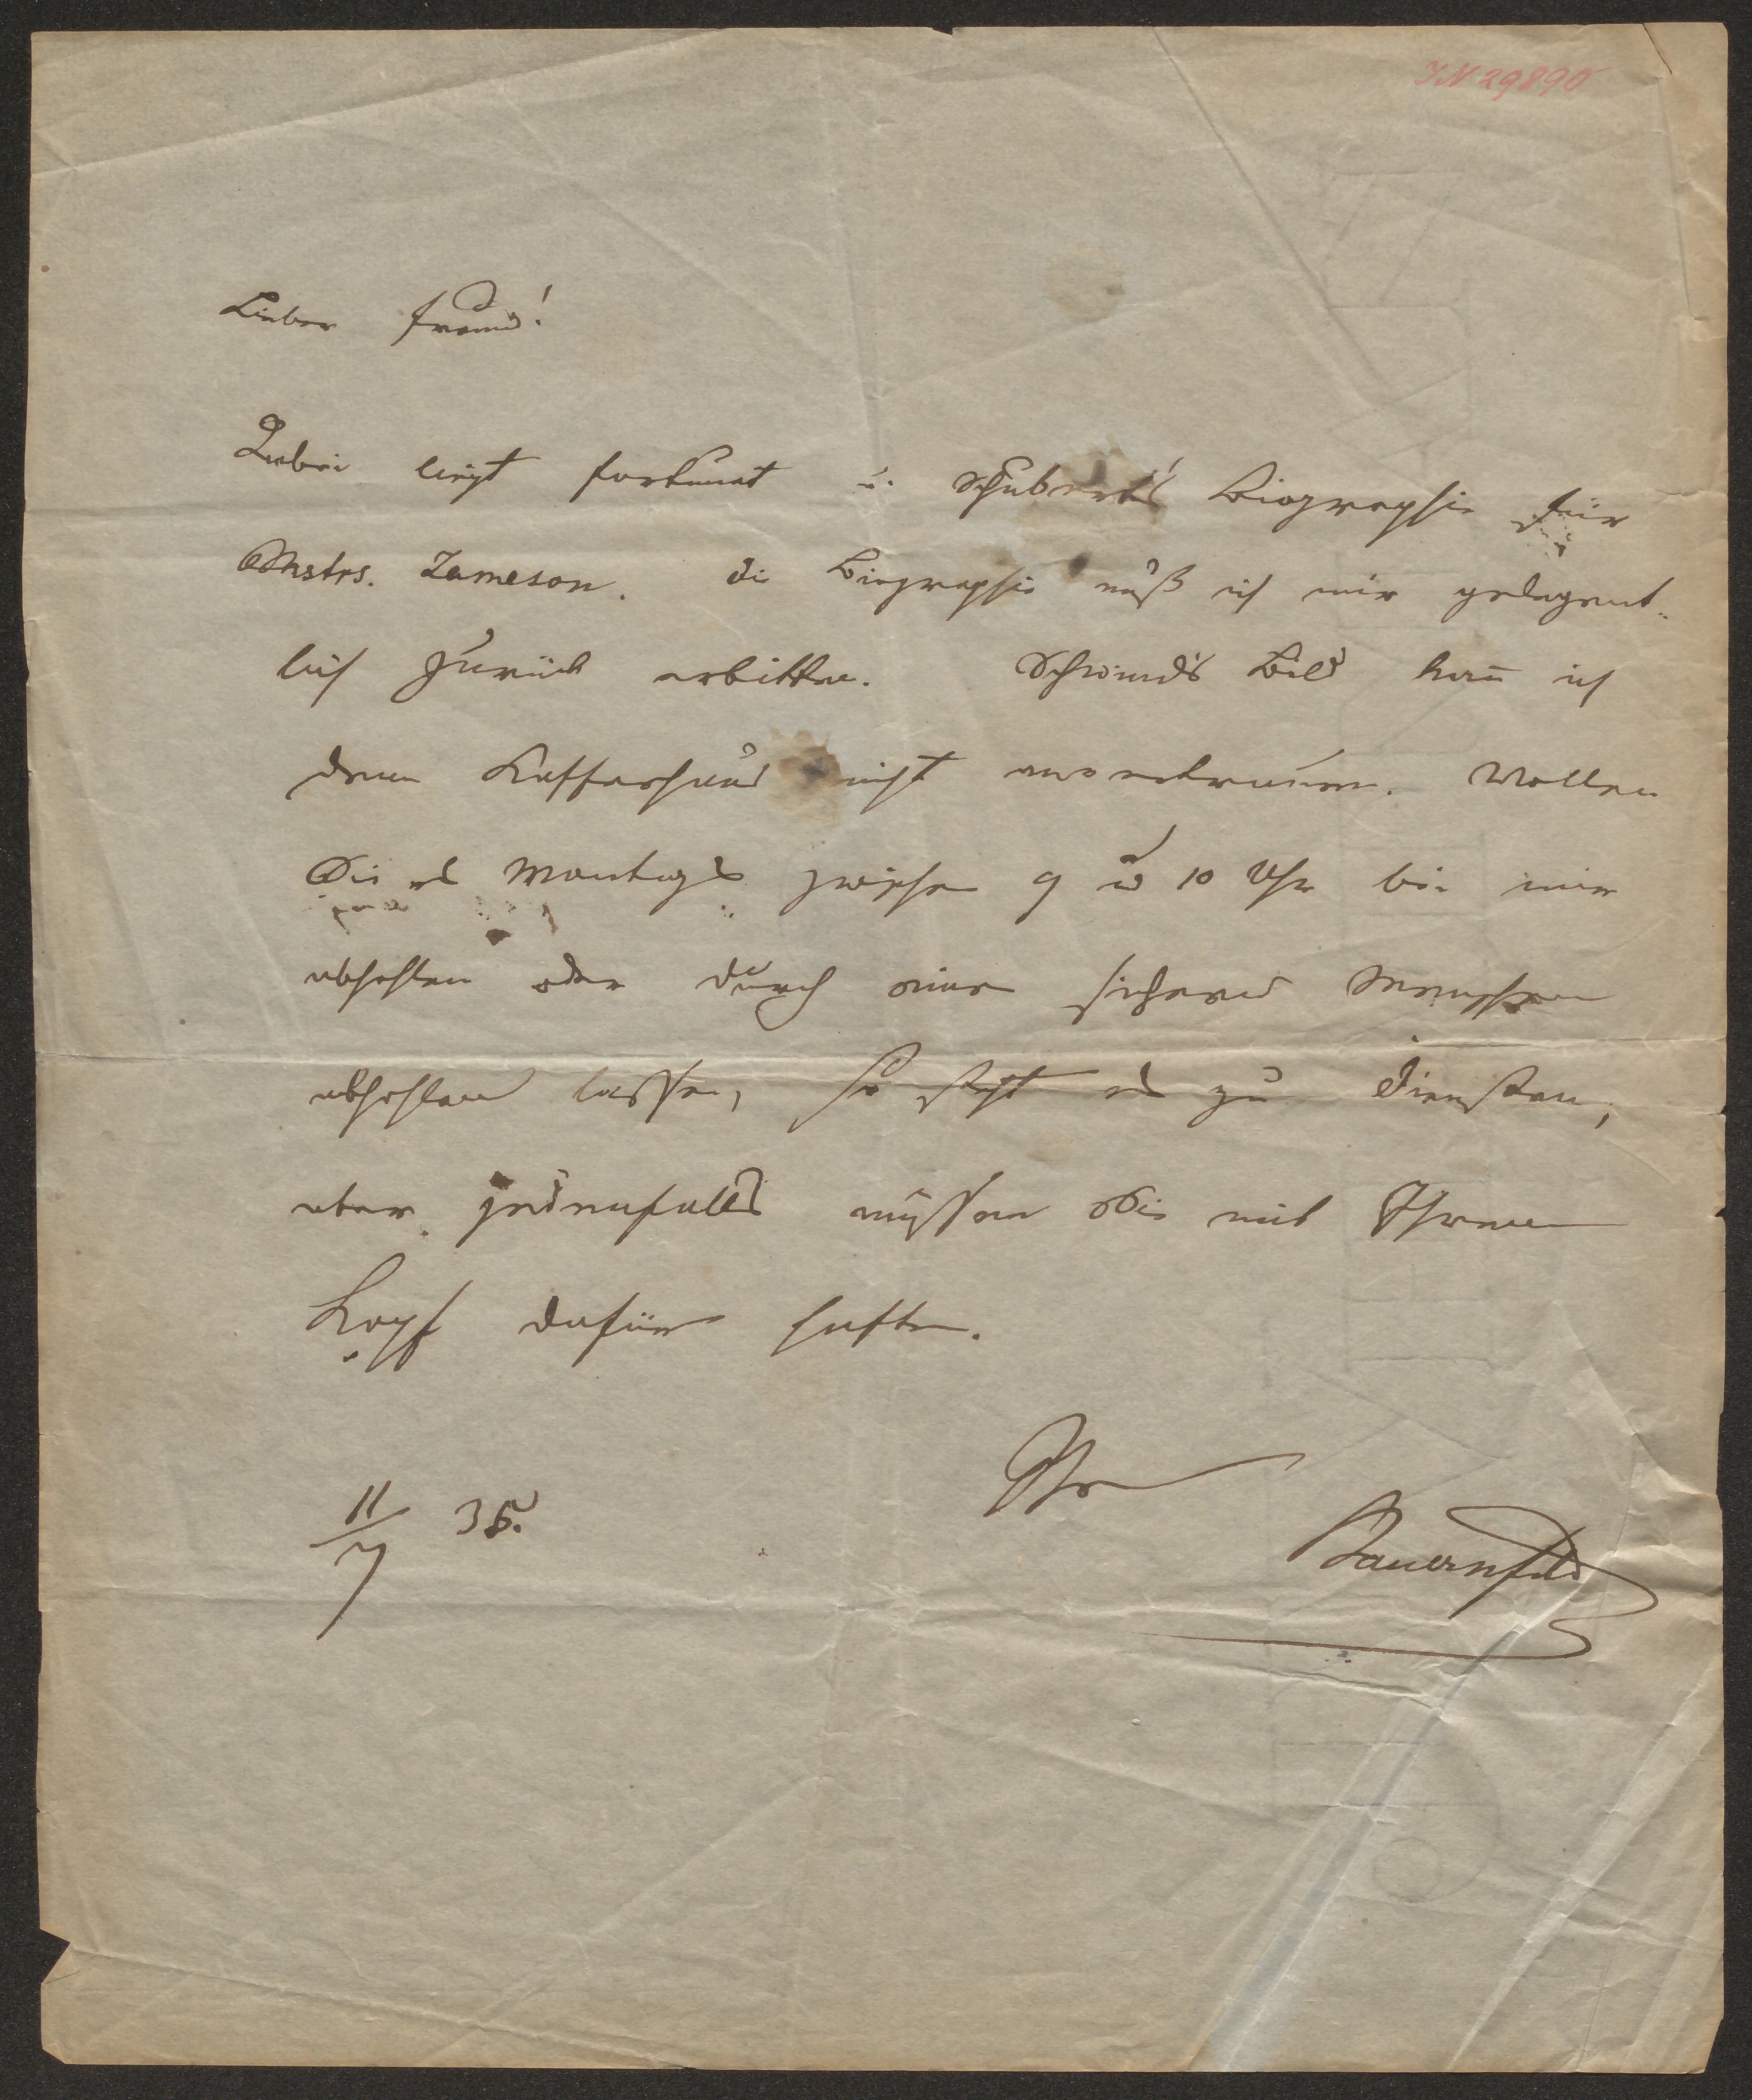 IN 29890
Lieber Freund!
Dabei liegt Fortunat u. Schubert's Biographie für
Mstrs. Jameson. Die Biographie muß ich mir gelegent-
lich zurück erbitten. Schwind's Bild kañ ich
dem Kaffeehaus nicht anvertrauen. Wollen
Sie es Montags zwischen 9 u 10 Uhr bei mir
abhohlen oder durch einen sichern Menschen
abhohlen lassen, so steht es zu Diensten,
aber jedenfalls müssen Sie mit Ihrem
Kopf dafür haften.
Ihr
11/7 35.
Bauernfeld